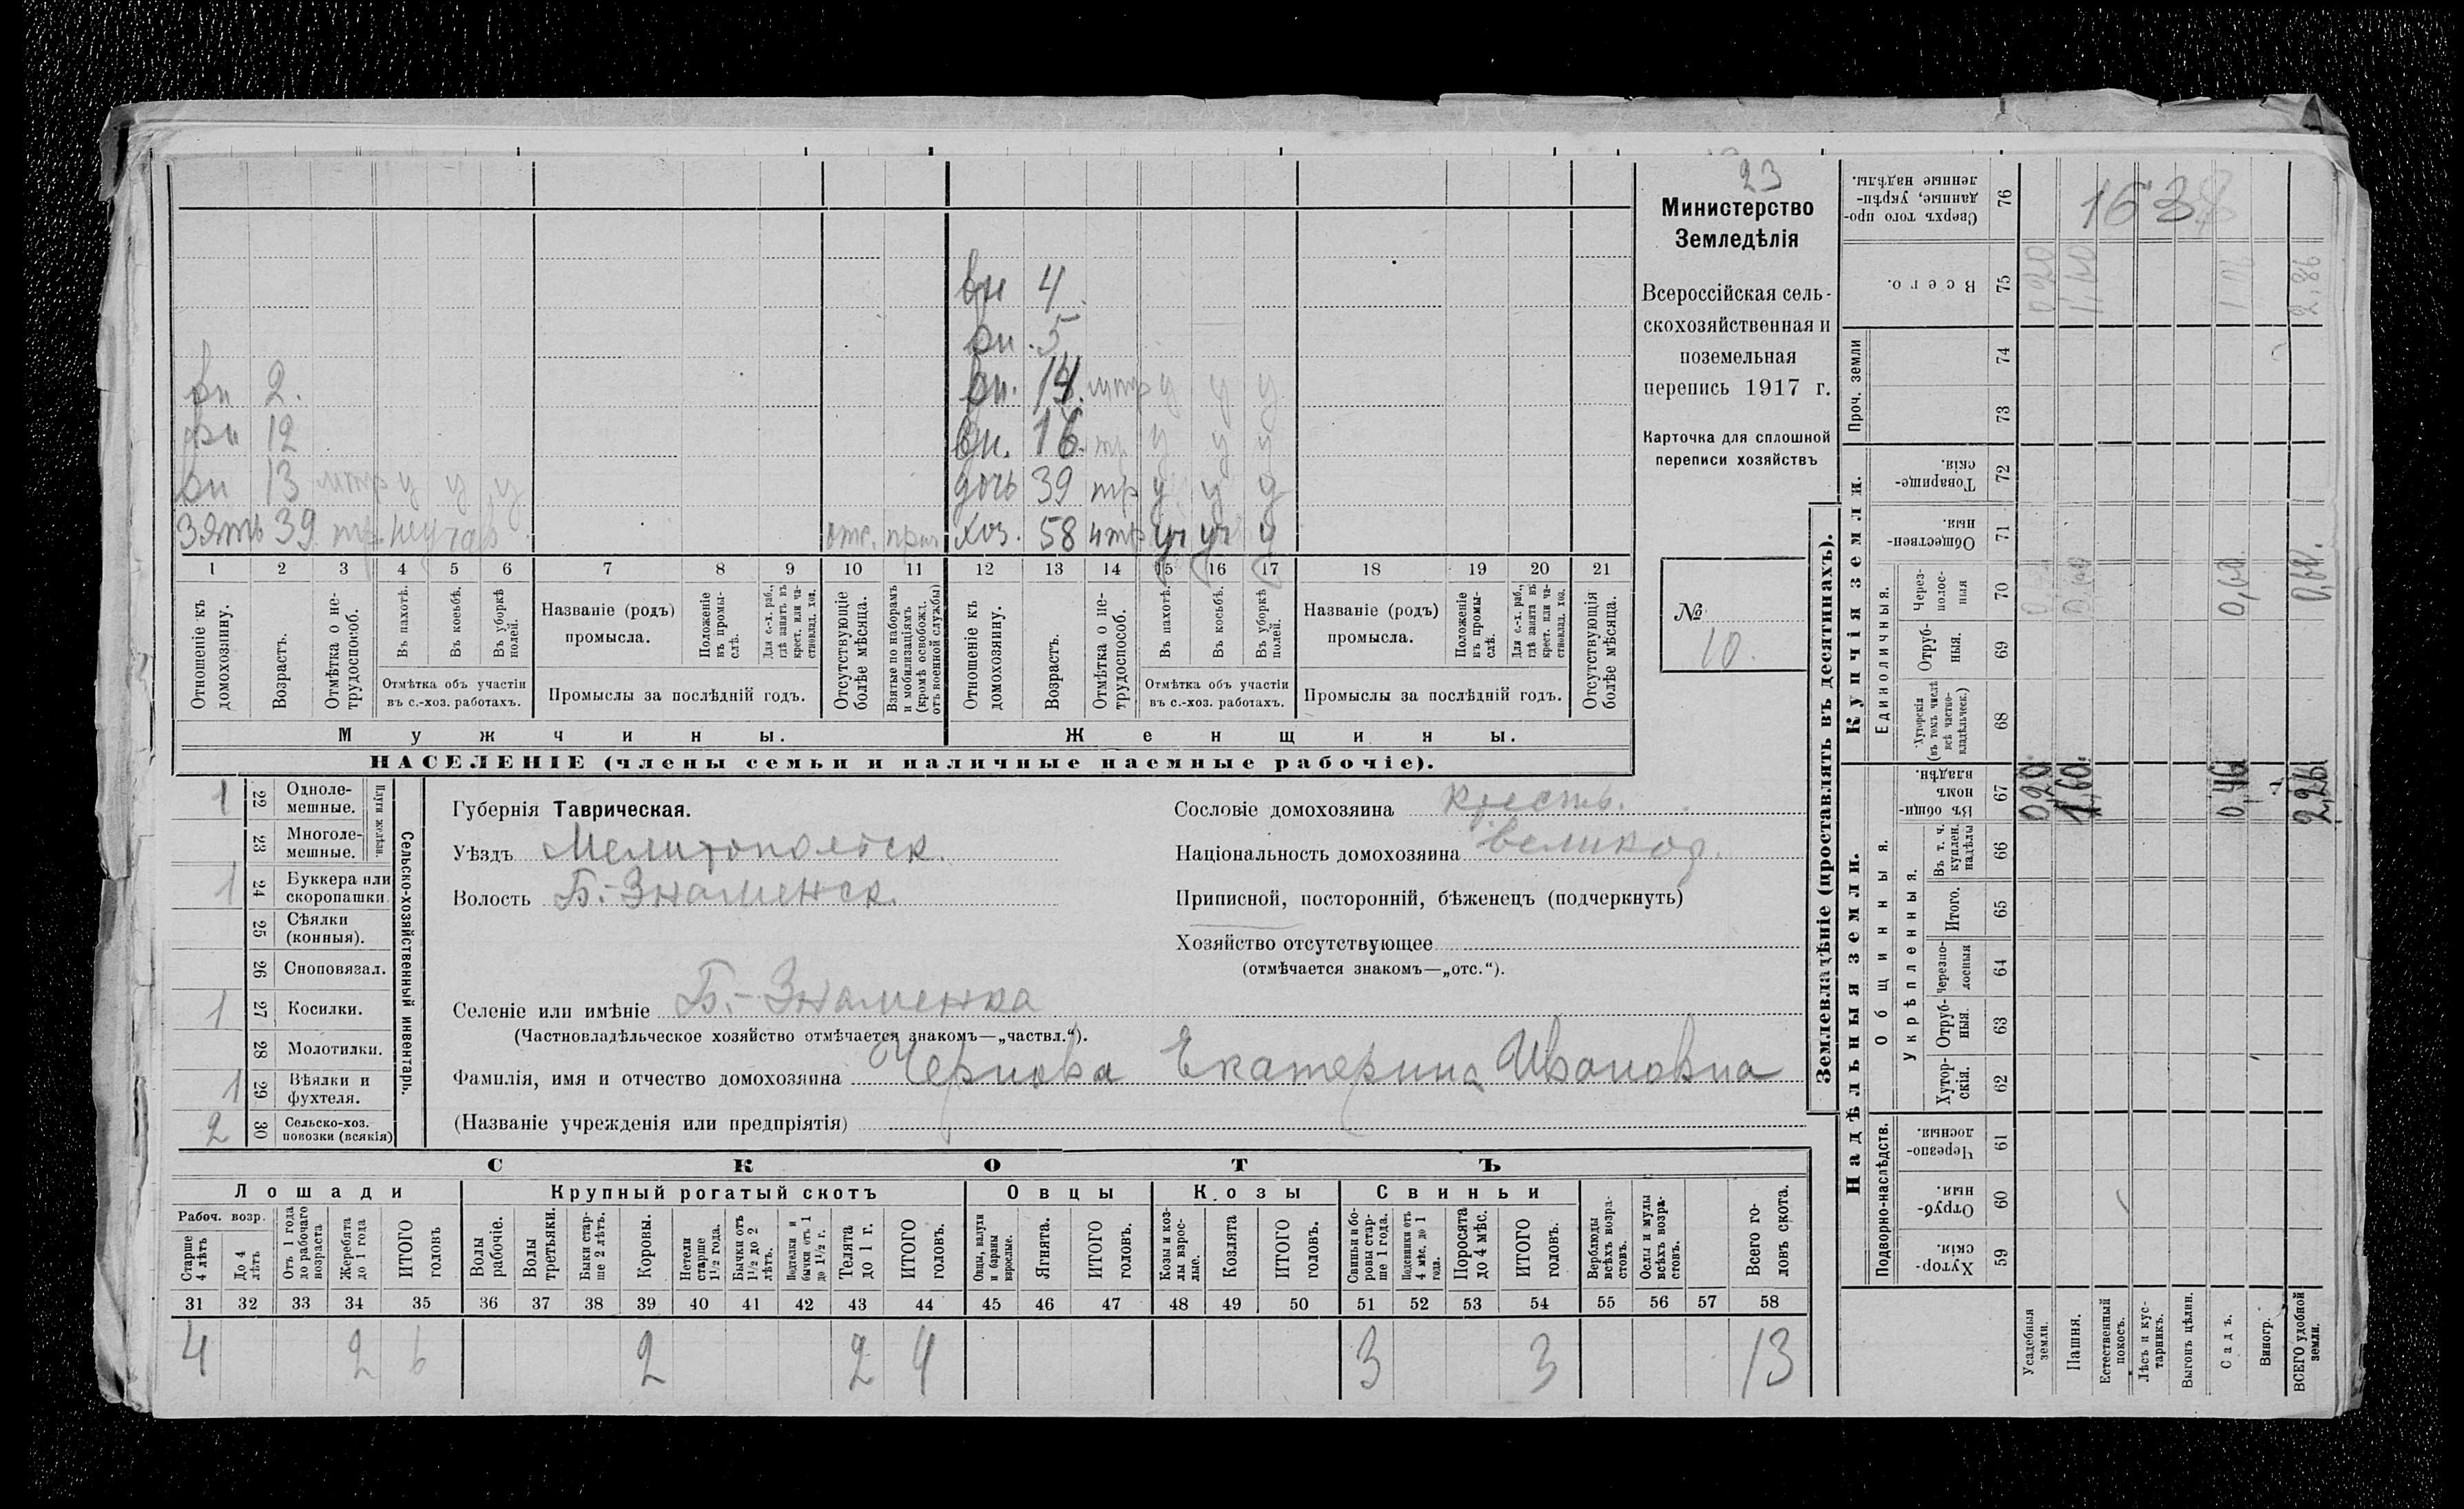 23
Министерство
Земледѣлія
Всероссійская сель-
скохозяйственная и
поземельная
перепись 1917 г.
Карточка для сплошной
переписи хозяйствъ
№
10.
вн 4
вн. 5
вн 2.
вн. 14.
вн 12
вн. 16.
вн 13 у у у
дочь 39 тр у у у
зять 39 тр. неучав
хоз. 58 уч уч у
1 2 3 4 5 6 7 8 9 10 11 12 13 14 15 16 17 18 19 20 21
Отношеніе къ домохозяину.
Возрастъ.
Отмѣтка о не-трудоспособ.
Въ пахотѣ.
Въ косьбѣ.
Въ уборкѣ полей.
Отмѣтка объ участіи въ с.-хоз. работахъ.
Названіе (родъ) промысла.
Положеніе въ промы-слѣ.
Для с.-х. раб., гдѣ занятъ въ крест. или ча-стновлад. хоз.
Промыслы за послѣдній годъ.
Отсутствующіе болѣе мѣсяца.
Взятые по наборамъ и мобилизаціямъ (кромѣ освобожд. отъ военной службы)
Отношеніе къ домохозяину.
Возрастъ.
Отмѣтка о не-трудоспособ.
Въ пахотѣ.
Въ косьбѣ.
Въ уборкѣ полей.
Отмѣтка объ участіи въ с.-хоз. работахъ.
Названіе (родъ) промысла.
Положеніе въ промы-слѣ.
Для с.-х. раб., гдѣ занята въ крест. или ча-стновлад. хоз.
Промыслы за послѣдній годъ.
Отсутствующія болѣе мѣсяца.
Мужчины.
Женщины.
НАСЕЛЕНІЕ (члены семьи и наличные наемные рабочіе).
1 22 Одноле-мешные.
23 Многоле-мешные.
Плуги желѣзн.
1 24 Буккера или скоропашки
25 Сѣялки (конныя).
26 Сноповязал.
1 27 Косилки.
28 Молотилки.
1 29 Вѣялки и фухтеля.
2 30 Сельско-хоз. повозки (всякія)
Сельско-хозяйственный инвентарь.
Губернія Таврическая.
Уѣздъ Мелитопольск.
Волость Б.-Знаменск.
Селеніе или имѣніе Б.-Знаменка
(Частновладѣльческое хозяйство отмѣчается знакомъ—„частвл.“).
Фамилія, имя и отчество домохозяина Чернова Екатерина Ивановна
(Названіе учрежденія или предпріятія)
Сословіе домохозяина Крестъ.
Національность домохозяина великор.
Приписной, посторонній, бѣженецъ (подчеркнуть)
Хозяйство отсутствующее
(отмѣчается знакомъ—„отс.“).
СКОТЪ
Лошади
Крупный рогатый скотъ
Овцы
Козы
Свиньи
Рабоч. возр.
Старше 4 лѣтъ
До 4 лѣтъ
Отъ 1 года до рабочаго возраста
Жеребята до 1 года
ИТОГО головъ
Волы рабочіе.
Волы третьяки.
Быки стар-ше 2 лѣтъ.
Коровы.
Нетели старше 1½ года.
Бычки отъ 1½ до 2 лѣтъ.
Подтелки и бычки отъ 1 до 1½ г.
Телята до 1 г.
ИТОГО головъ.
Овцы, валухи и бараны взрослые.
Ягнята.
ИТОГО головъ.
Козы и коз-лы взрос-лые.
Козлята
ИТОГО головъ.
Свиньи и бо-ровы стар-ше 1 года.
Подсвинки отъ 4 мѣс. до 1 года.
Поросята до 4 мѣс.
ИТОГО головъ.
Верблюды всѣхъ возра-стовъ.
Ослы и мулы всѣхъ возра-стовъ.
Всего го-ловъ скота.
31 32 33 34 35 36 37 38 39 40 41 42 43 44 45 46 47 48 49 50 51 52 53 54 55 56 57 58
4 2 6 2 2 4 3 3 13
Землевладѣніе (проставлять въ десятинахъ).
Сверхъ того про-данные, укрѣп-ленные надѣлы. 76
1638
Всего. 75 0,20 1,60 2,86
Проч. земли 74 73
Купчія земли.
Товарище-скія. 72
Обществен-ныя. 71
Единоличныя.
Через-полос-ныя 70 0,60 0,60.
Отруб-ныя. 69
Хуторскія (въ томъ числѣ всѣ частно-владѣльческ.) 68
Надѣльныя земли.
Общинныя.
Въ общи-номъ владѣн. 67 0,20. 1,60. 0,46 2,26
Укрѣпленныя.
Въ т. ч. куплен. надѣлы 66
Итого. 65
Черезпо-лосныя 64
Отруб-ныя. 63
Хутор-скія. 62
Подворно-наслѣдств.
Черезпо-лосныя. 61
Отруб-ныя. 60
Хутор-скія. 59
Усадебныя земли.
Пашня.
Естественный покосъ.
Лѣсъ и кус-тарникъ.
Выгонъ цѣлин.
Садъ.
Виногр.
ВСЕГО удобной земли.